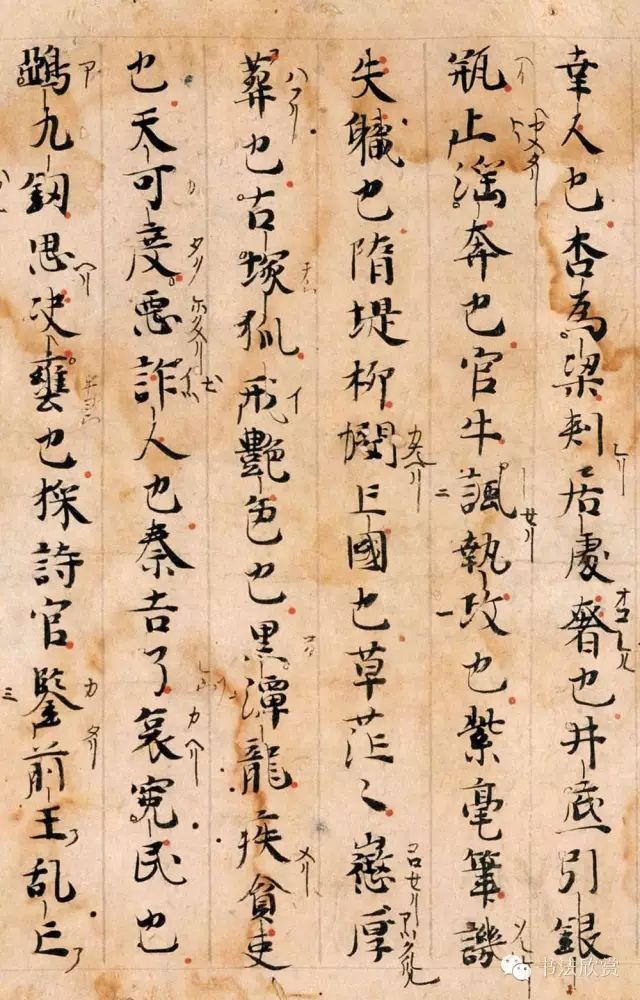 幸人也杏為梁刺居處奢也井底引銀
瓶止滛奔也官牛諷執政也紫毫筆譏
失職也隋堤柳憫亡國也草茫〻懲厚
葬也古塚狐戒艷色也黒潭龍疾貪吏
也天可度惡詐人也秦吉了哀寃民也
鵶九釼思决壅也採詩官鑒前王乱亡
书法欣赏